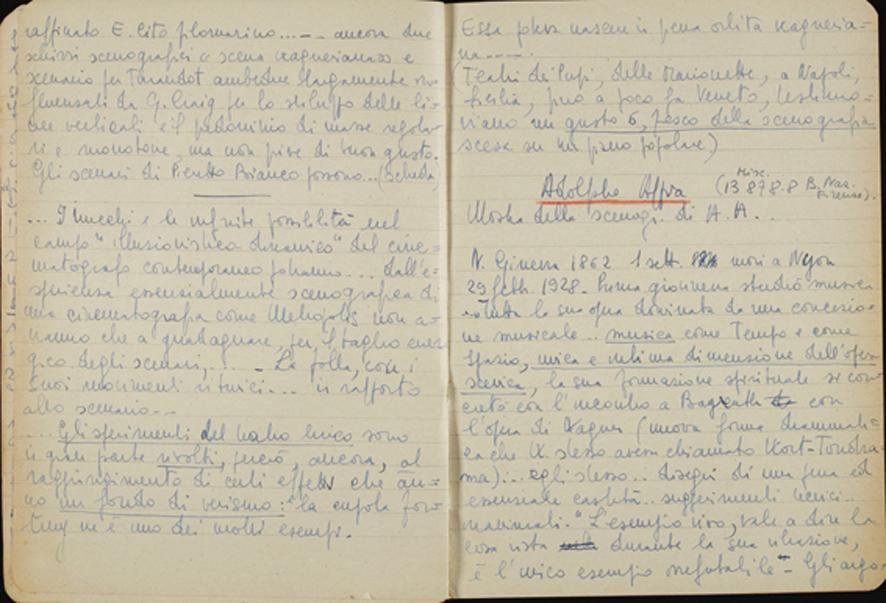 raffinato E. Cito plosmarino...-- ancora due
scenografici e scena wagneriana e
scenario per Turandot ambedue largamente in=
fluenzati da G. Craig per lo sviluppo delle li=
nee verticali e il predominio di masse regola=
ri e monotone, ma non prive di buon gusto.
Gli scenari di Pieretto Bianco possono... (scheda)
... I trucchi e le infinite possibilità nel
campo "illusionistico dinamico" del cine=
matografo contemporaneo potranno... dall'e=
sperienza essenzialmente scenografica di
una cinematografia come Metropolis non a=
vranno che a guadagnare per il taglio ener
gico degli scenari,... - La folla, con i
suoi movimenti ritmici... in rapporto
allo scenario--
... Gli esperimenti del teatro lirico sono
in gran parte rivolti, perciò, ancora, al
raggiungimento di certi effetti che an=
no un fondo di verismo: "la cupola For=
tuny ne è uno dei molti esempi.
Essa poteva nascere in piena orbita wagneria=
na----.
(Teatri dei Pupi, delle Marionette, a Napoli,
Sicilia, fino a poco fa Veneto, testimo=
niano un gusto della scenografia
scesa su un piano popolare)
Adolphe Appia
(Misc. 13878.8 B. Naz. Firenze).
Mostra della scenogr. di A. A...
N. Ginevra 1862 1 sett. morì a Nyon
29 febb. 1928. Prima giovinezza studiò musica
e tutta la sua opera dominata da una concezio=
ne musicale.. musica come Tempo e come
Spazio, unica e ultima dimensione dell'opera
scenica, la sua formazione spirituale si con=
cretò con l'incontro a Bayreuth con
l'opera di Wagner (nuova forma drammati=
ca che W. stesso aveva chiamato Wort-Tondra=
ma)... egli stesso.. disegni di una pura ed
essenziale castità.. suggerimenti tecnici..
maximali. "L'esempio vivo, vale a dire la
cosa vista durante la sua creazione,
è l'unico esempio irrefutabile"- Gli argo=